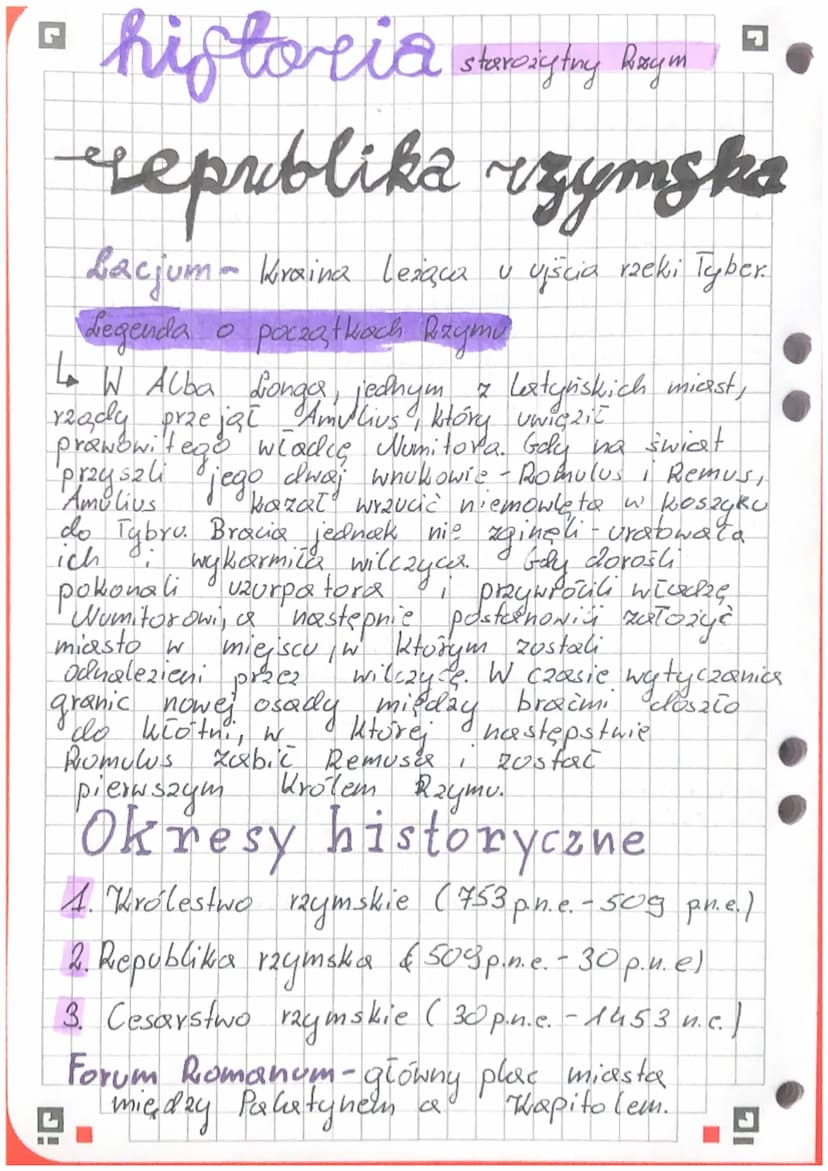 historia starożytny Rzym
republika rzymska
Lacjum - kraina leżąca u ujścia rzeki Tyber.
Legenda o początkach Rzymu
↳ W Alba Longa, jednym z latyńskich miast,
rządy przejął Amulius, który uwięził
prawowitego władcę Numitora. Gdy na świat
przyszli jego dwaj wnukowie - Romulus i Remus,
Amulius kazał wrzucić niemowlęta w koszyku
do Tybru. Bracia jednak nie zginęli - uratowała
ich i wykarmiła wilczyca. Gdy dorośli
pokonali uzurpatora i przywrócili władzę
Numitorowi, a następnie postanowili założyć
miasto w miejscu, w którym zostali
odnalezieni przez wilczycę. W czasie wytyczania
granic nowej osady między braćmi doszło
do kłótni, w której następstwie
Romulus zabił Remusa i został
pierwszym królem Rzymu.
Okresy historyczne
1. Królestwo rzymskie (753 p.n.e. - 509 p.n.e.)
2. Republika rzymska (509 p.n.e. - 30 p.n.e)
3. Cesarstwo rzymskie (30 p.n.e. - 1453 n.e.)
Forum Romanum - główny plac miasta
między Palatynem a Kapitolem.